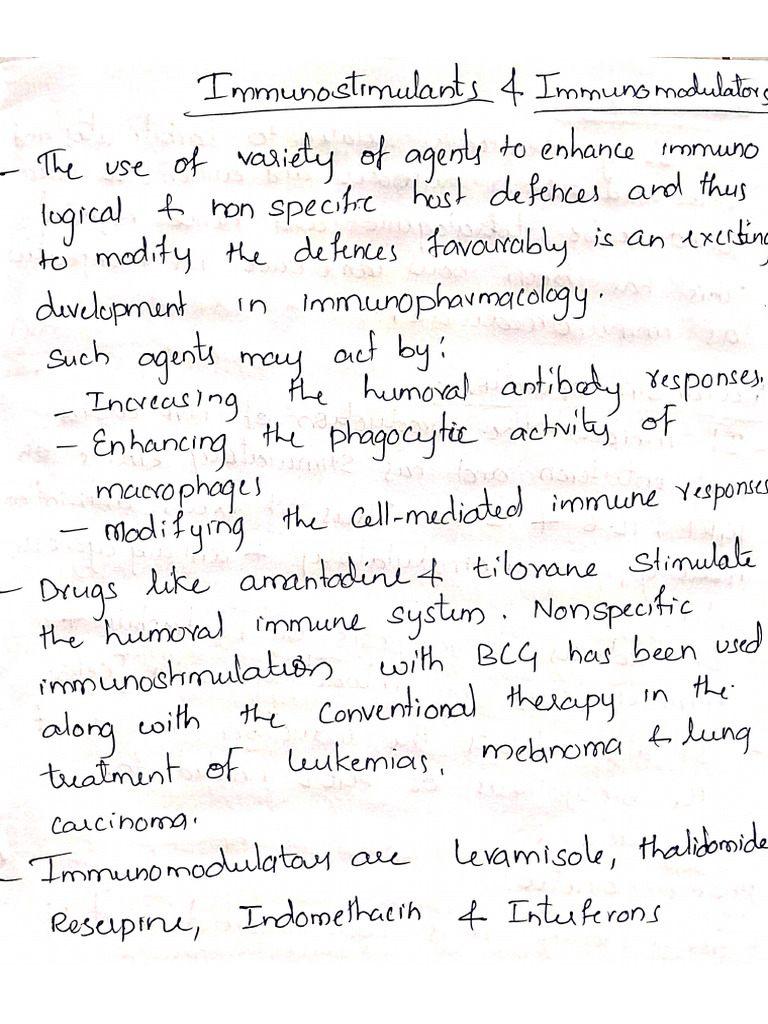 Immunostimulants & Immunomodulators
- The use of variety of agents to enhance immuno
logical & non specific host defences and thus
to modify the defences favourably is an exciting
development in immunopharmacology.
Such agents may act by:
- Increasing the humoral antibody responses.
- Enhancing the phagocytic activity of
macrophages
- Modifying the cell-mediated immune responses
- Drugs like amantadine & tilorane stimulate
the humoral immune system. Nonspecific
immunostimulation with BCG has been used
along with the conventional therapy in the
treatment of leukemias, melanoma & lung
carcinoma.
- Immunomodulators are Levamisole, thalidomide
Reserpine, Indomethacin & Interferons